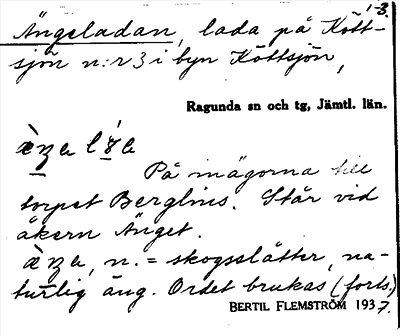 1-3.
Ängeladan, lada på Kött-
sjön n:r 3 i byn Köttsjön,
Ragunda sn och tg, Jämtl. län.
På inägorna till
torpet Berglins. Står vid
åkern Änget.
n. = skogsslåtter, na-
turlig äng. Ordet brukas (forts.)
BERTIL FLEMSTRÖM 1937.